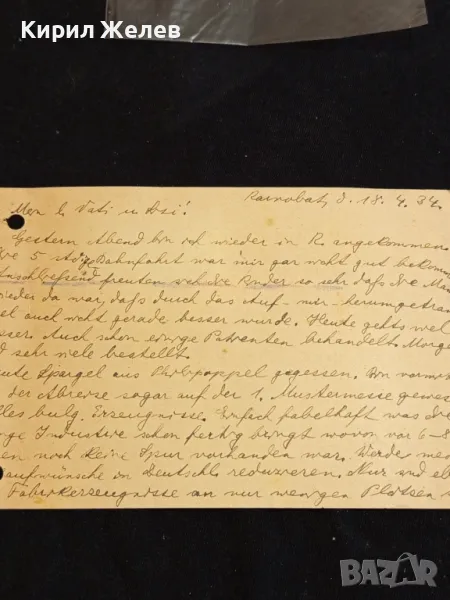 Кирил Желев
Karnobat, d. 18.4.34.
Mein l. Vati u. Asi!
Gestern Abend bin ich wieder in K. angekommen.
5 stdg. Bahnfahrt war mir gar nicht gut bekomm
Anschließend freuten sich die Kinder so sehr daß die Mam
wieder da war, daß durch das Auf-mir-herumgetram
auch nicht gerade besser wurde. Heute gehts viel
Auch schon einige Patienten behandelt. Morge
sehr viele bestellt.
Spargel aus Philippopel gegessen. Bin vormit
der Abreise sogar auf der 1. Mustermesse gewes
bulg. Erzeugnisse. Einfach fabelhaft was die
Industrie schon fertig bringt wovon vor 6-8
noch keine Spur vorhanden war. Werde mei
aufwünsche in Deutschl. reduzieren. Nur sind
Fabrikerzeugnisse an nur wenigen Plätzen
BAZAR